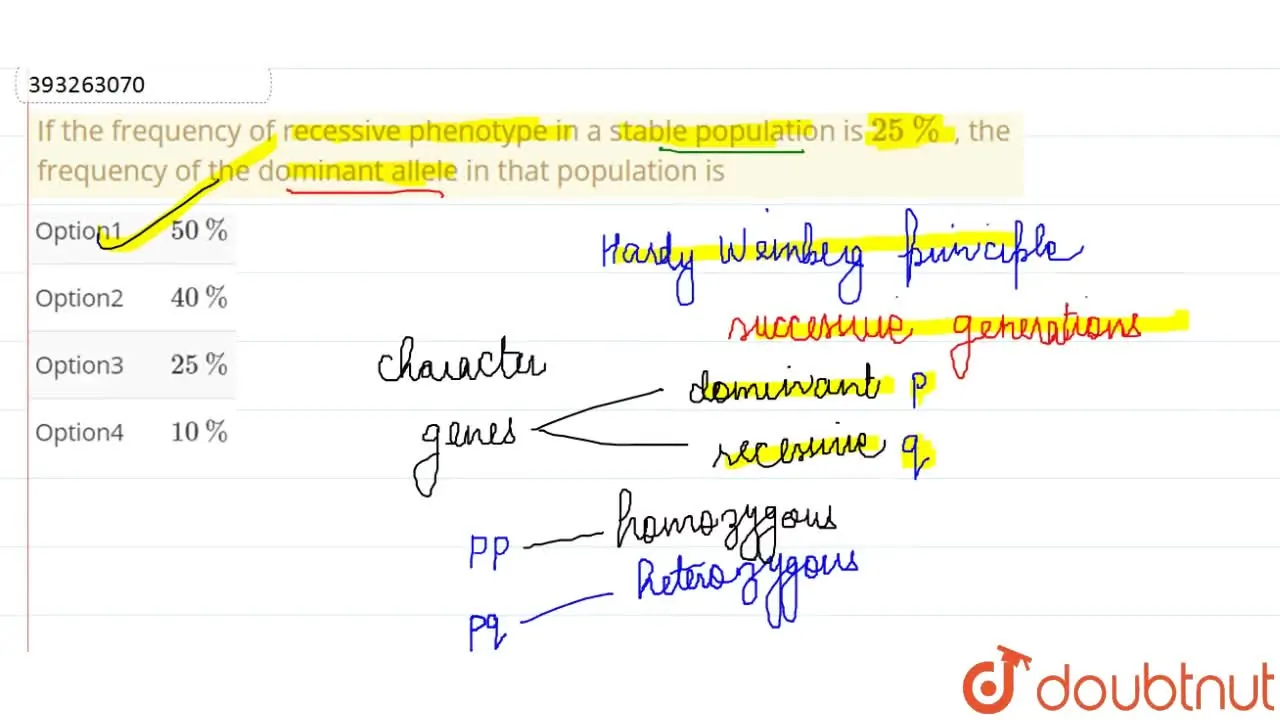 393263070
If the frequency of recessive phenotype in a stable population is 25 % , the
frequency of the dominant allele in that population is
Option1 50 %
Option2 40 %
Option3 25 %
Option4 10 %
Hardy Weinberg Principle
successive generations
character
genes
dominant p
recessive q
pp homozygous
pq heterozygous
doubtnut